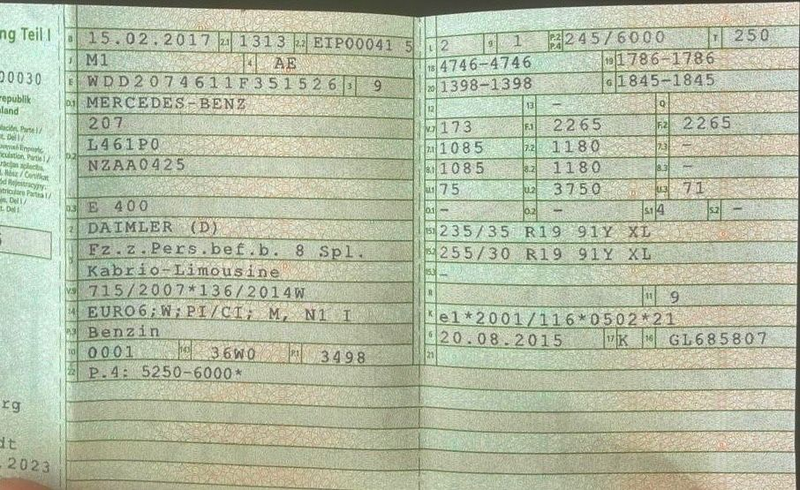 ng Teil I
00030
republik
land
rg
dt
.2023
B 15.02.2017 2.1 1313 2.2 EIP00041 5
J M1 4 AE
E WDD2074611F351526 3 9
D.1 MERCEDES-BENZ
207
D.2 L461P0
NZAA0425
D.3 E 400
2 DAIMLER (D)
5 Fz.z.Pers.bef.b. 8 Spl.
Kabrio-Limousine
V.9 715/2007*136/2014W
14 EURO6;W;PI/CI; M, N1 I
P.3 Benzin
10 0001 14.1 36W0 P.1 3498
22 P.4: 5250-6000*
L 2 9 1 P.2 P.4 245/6000 T 250
18 4746-4746 19 1786-1786
20 1398-1398 G 1845-1845
12 13 - Q
V.7 173 F.1 2265 F.2 2265
7.1 1085 7.2 1180 7.3 -
8.1 1085 8.2 1180 8.3 -
U.1 75 U.2 3750 U.3 71
O.1 - O.2 - S.1 4 S.2 -
15.1 235/35 R19 91Y XL
15.2 255/30 R19 91Y XL
15.3 -
R 11 9
K e1*2001/116*0502*21
6 20.08.2015 17 K 16 GL685807
21